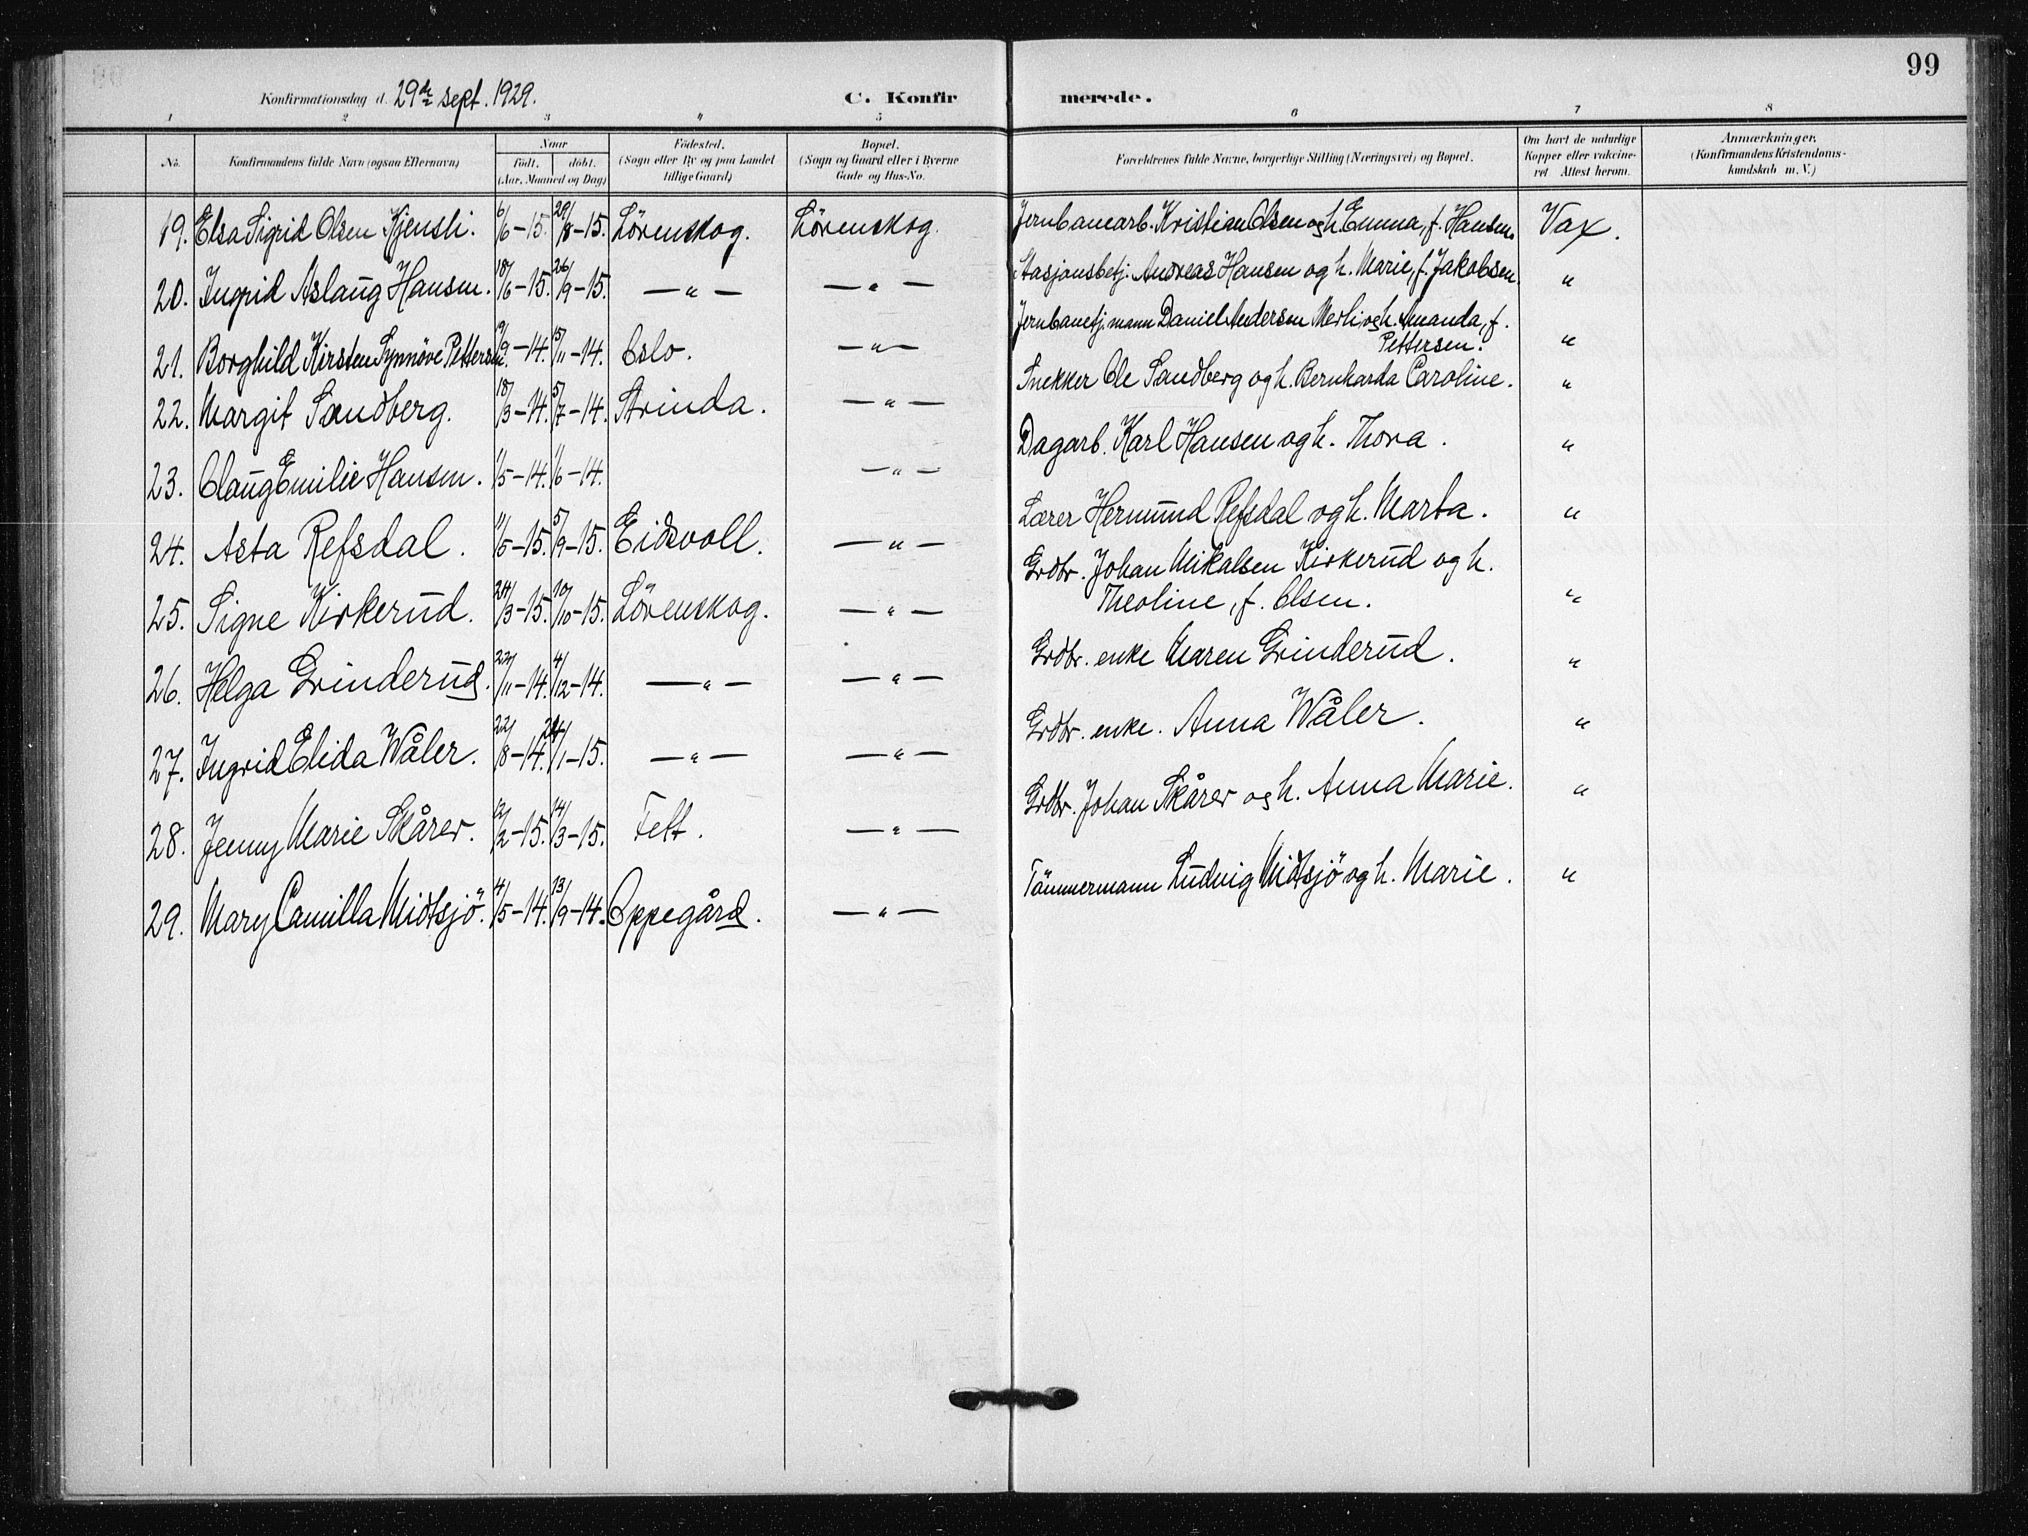 99
Konfirmationsdag d. 29de sept. 1929. C. Konfir merede.
1 2 3 4 5 6 7 8
No. Konfirmandens fulde Navn (ogsaa Efternavn) Naar født. døbt. (Aar, Maaned og Dag) Fødested. (Sogn eller By og paa Landet tillige Gaard) Bopæl. (Sogn og Gaard eller i Byerne Gade og Hus-No. Forældrenes fulde Navne, borgerlige Stilling (Næringsvei) og Bopæl. Om havt de naturlige Kopper eller vakcineret. Attest herom. Anmærkninger. (Konfirmandens Kristendomskundskab m. V.)
19. Elsa Sigrid Olsen Kjensli. 6/6-15. 29/8-15. Lörenskog. Lörenskog. Jernbanearb. Kristian Olsen og h. Emma, f. Hansen. Vax.
20. Ingrid Aslaug Hansen. 18/6-15. 26/9-15. —"— —"— Stasjonsbetj. Andreas Hansen og h. Marie, f. Jakobsen. "
21. Borghild Kirsten Synnöve Pettersen. 9/9-14. 5/11-14. Oslo. —"— Jernbanetj.mann Daniel Andersen Merli, og h. Amanda, f. Pettersen. "
22. Margit Sandberg. 18/3-14. 5/7-14. Strinda. —"— Snekker Ole Sandberg og h. Bernharda Caroline. "
23. Olaug Emilie Hansen. 1/5-14. 1/6-14. —"— Dagarb. Karl Hansen og h. Thora. "
24. Asta Refsdal. 11/5-15. 5/9-15. Eidsvoll. —"— Lærer Hermund Refsdal og h. Marta. "
25. Signe Kirkerud. 24/3-15. 10/10-15. Lörenskog. —"— Grdbr. Johan Mikalsen Kirkerud og h. Theoline, f. Olsen. "
26. Helga Grinderud. 22/11-14. 4/12-14. —"— —"— Grdbr. enke Maren Grinderud. "
27. Ingrid Elida Wåler. 22/8-14. 24/1-15. —"— —"— Grdbr. enke. Anna Wåler. "
28. Jenny Marie Skårer. 12/2-15. 14/3-15. Fett. —"— Grdbr. Johan Skårer og h. Anna Marie. "
29. Mary Camilla Midtsjö. 4/5-14. 13/9-14. Oppegård. —"— Tömmermann Ludvig Midtsjö og h. Marie. "